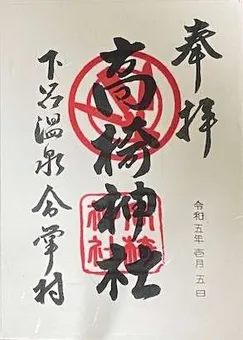 奉拝
高椅神社
下呂温泉合掌村
令和五年壱月五日